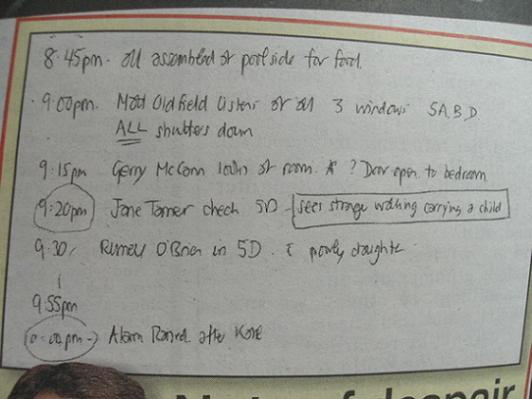 8.45pm. all assembled at poolside for food.
9.00pm. Matt Oldfield listens at all 3 windows 5A,B,D
ALL shutters down
9:15pm Gerry McCann looks at room A ? Door open to bedroom
9:20pm Jane Tanner check 5D - sees stranger walking carrying a child
9:30/ Russell O'Brien in 5D. poorly daughter
9.55pm
10:00pm -) Alarm Raised after Kate
of despair